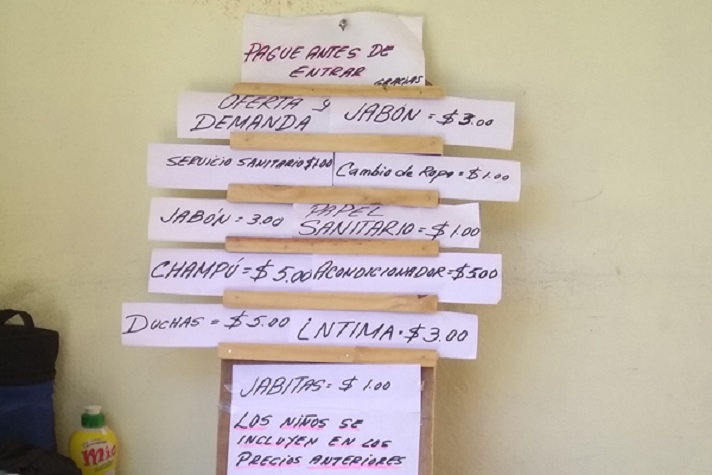 PAGUE ANTES DE
ENTRAR
GRACIAS
OFERTA Y
DEMANDA
JABÓN = $3.00
SERVICIO SANITARIO $1.00
Cambio de Ropa = $1.00
JABÓN = 3.00
PAPEL
SANITARIO = $1.00
CHAMPÚ = $5.00
ACONDICIONADOR = $500
DUCHAS = $5.00
INTIMA = $3.00
JABITAS = $1.00
LOS NIÑOS SE
INCLUYEN EN LOS
PRECIOS ANTERIORES